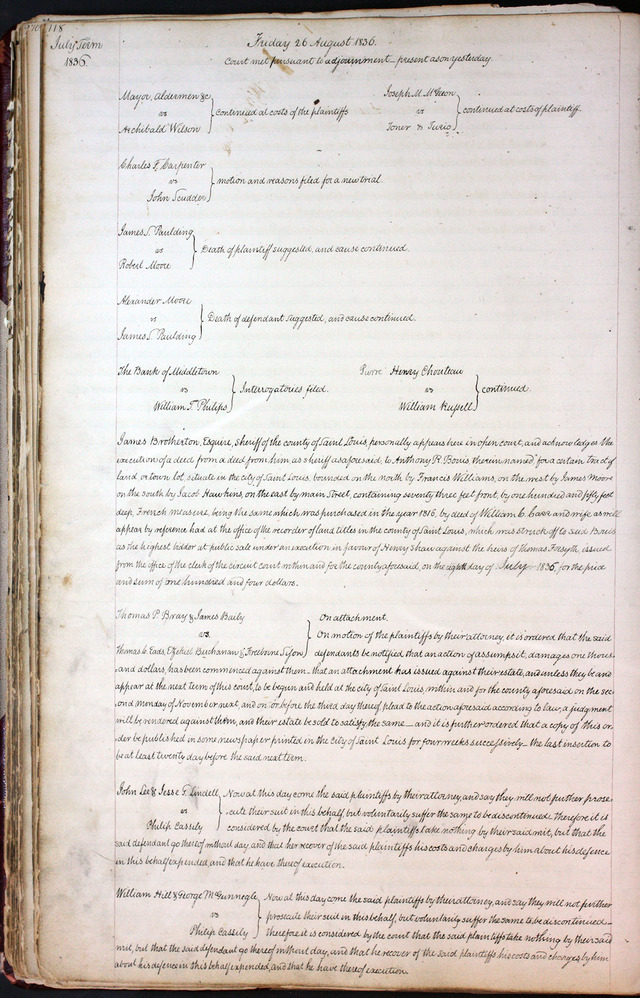 118
July Term
1836.
Friday 26 August 1836.
Court met pursuant to adjournment_ present as on yesterday.
Mayor, Aldermen &c
vs
Archibald Wilson
continued at costs of the plaintiffs
Joseph M. McGeon
vs
Toner &
continued at costs of plaintiff.
Charles F. Carpenter
vs
John Scudder
motion and reasons filed for a new trial.
James S. Paulding
vs
Robert Moore
Death of plaintiff suggested, and cause continued.
Alexander Moore
vs
James S. Paulding
Death of defendant suggested, and cause continued.
The Bank of Middletown
vs
William T. Philips
Interrogatories filed.
Pierre Henry Chouteau
vs
William Russell
continued.
James Brotherton, Esquire, Sheriff of the county of Saint Louis, personally appears here in open court, and acknowledges the
execution of a deed from a deed from him, as sheriff as aforesaid, to Anthony R. Bouis, therein named, for a certain tract of
land or town lot, situate in the city of Saint Louis, bounded on the north by Francis Williams, on the west by James Moore
on the south by Jacob Hawkins, on the east by main Street, containing seventy three feet front, by one hundred and fifty feet
deep, French measure, being the same which was purchased in the year 1816, by deed of William C. Carr and wife, as will
appear by reference had at the office of the recorder of land titles in the county of Saint Louis, which was struck off to said Bouis
as the highest bidder at public sale under an execution in favour of Henry Shaw against the heirs of Thomas Forsyth, issued
from the office of the clerk of the circuit court within and for the county aforesaid, on the eighth day of July 1836, for the price
and sum of one hundred and four dollars.
Thomas P. Bray & James Baily
vs.
Thomas C. Eads, Ezekiel Buchanan &
On attachment.
On motion of the plaintiffs by their attorney, it is ordered that the said
defendants be notified that an action of assumpsit, damages one thous-
and dollars, has been commenced against them_ that an attachment has issued against their estate, and unless they be and
appear at the next term of this court, to be begun and held at the city of Saint Louis, within and for the county aforesaid on the sec-
ond monday of November next, and on or before the third day thereof plead to the action aforesaid according to law, a judgment
will be rendered against them, and their estate be sold to satisfy the same_ and it is further ordered that a copy of this or-
der be published in some newspaper printed in the city of Saint Louis for four weeks successively_ the last insertion to
be at least twenty day before the said next term.
John Lee & Jesse G. Lindell
vs
Philip Cassily
Now at this day come the said plaintiffs by their attorney, and say they will not further prose-
cute their suit in this behalf but voluntarily suffer the same to be discontinued. Therefore it is
considered by the court that the said plaintiffs take nothing by their said writ, but that the
said defendant go thereof without day, and that he recover of the said plaintiffs his costs and charges by him about his defence
in this behalf expended, and that he have thereof execution.
William Hill & George McGunnegle
vs
Philip Cassily
Now at this day come the said plaintiffs by their attorney, and say they will not further
prosecute their suit in this behalf, but voluntarily suffer the same to be discontinued_
therefore it is considered by the court that the said plaintiffs take nothing by their said
writ, but that the said defendant go thereof without day, and that he recover of the said plaintiffs his costs and charges by him
about his defence in this behalf expended, and that he have thereof execution.